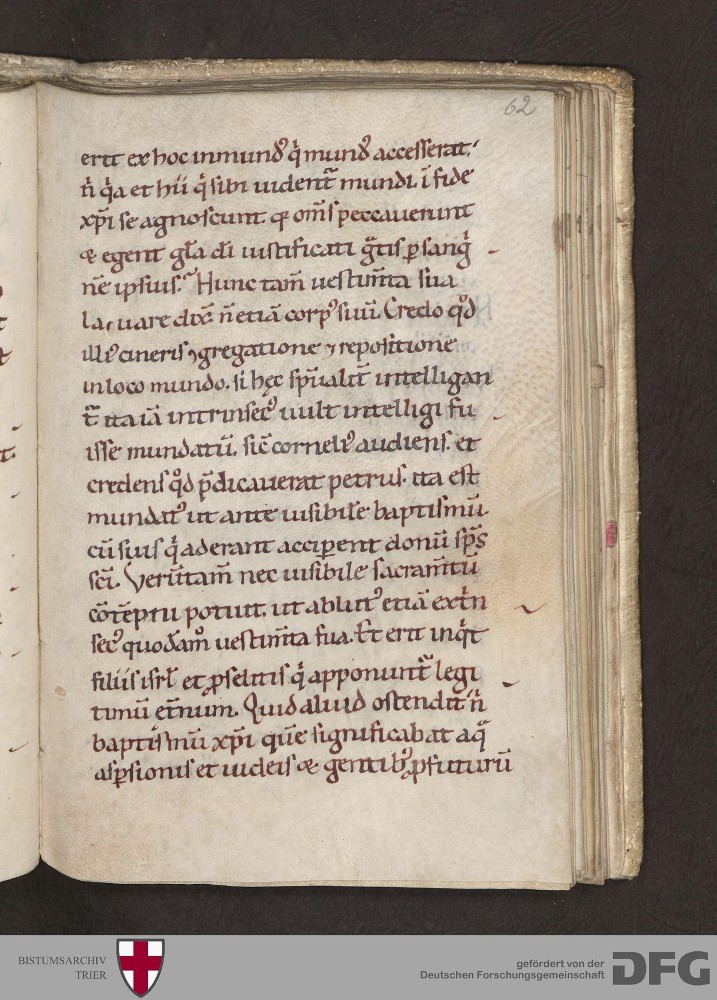 62
erit ex hoc inmund᷒ q̇ mund᷒ accesserat.
n̄ q̇a et hii q̇ sibi uident̄ mundi. ī fide
xp̄i se agnoscunt. qd̄ om̄s peccauerunt
& egent gl̄a dī iustificati gͣtis p̱ sanġ
nē ipsius. Hunc tam̄ uestim̄ta sua
lauare dix̄ n̄ etiā corp᷒ suū. Credo qͦd
ill᷒ cineris ꝯgregatione ⁊ repositione
in loco mundo. si hęc sp̄ualit̄ intelligan
t̄ ita iā intrinsec᷒ uult intelligi fu
isse mundatū. sic̄ corneli᷒ audiens. et
credens qͦd p̄dicauerat petrus. ita est
mundat᷒ ut ante uisibile baptismū.
cū suis q̇ aderant accip̱ent donū sp̄s
sc̄i. Verūtam̄ nec uisibile sacram̄tū
cōtēpni potuit. ut ablut᷒ etiā ext̄n
sec᷒ quodam᷒ uestim̄ta sua. Et erit inqͥt
filiis isrl̄ et ꝓselitis q̇ apponunt̄ legi
timū et̄num. Quid aliud ostendit n̄
baptismū xp̄i quē significabat aqͣ
asp̱sionis et iudeis & gentib᷒ ꝓfuturū
BISTUMSARCHIV
TRIER
gefördert von der
Deutschen Forschungsgemeinschaft
DFG